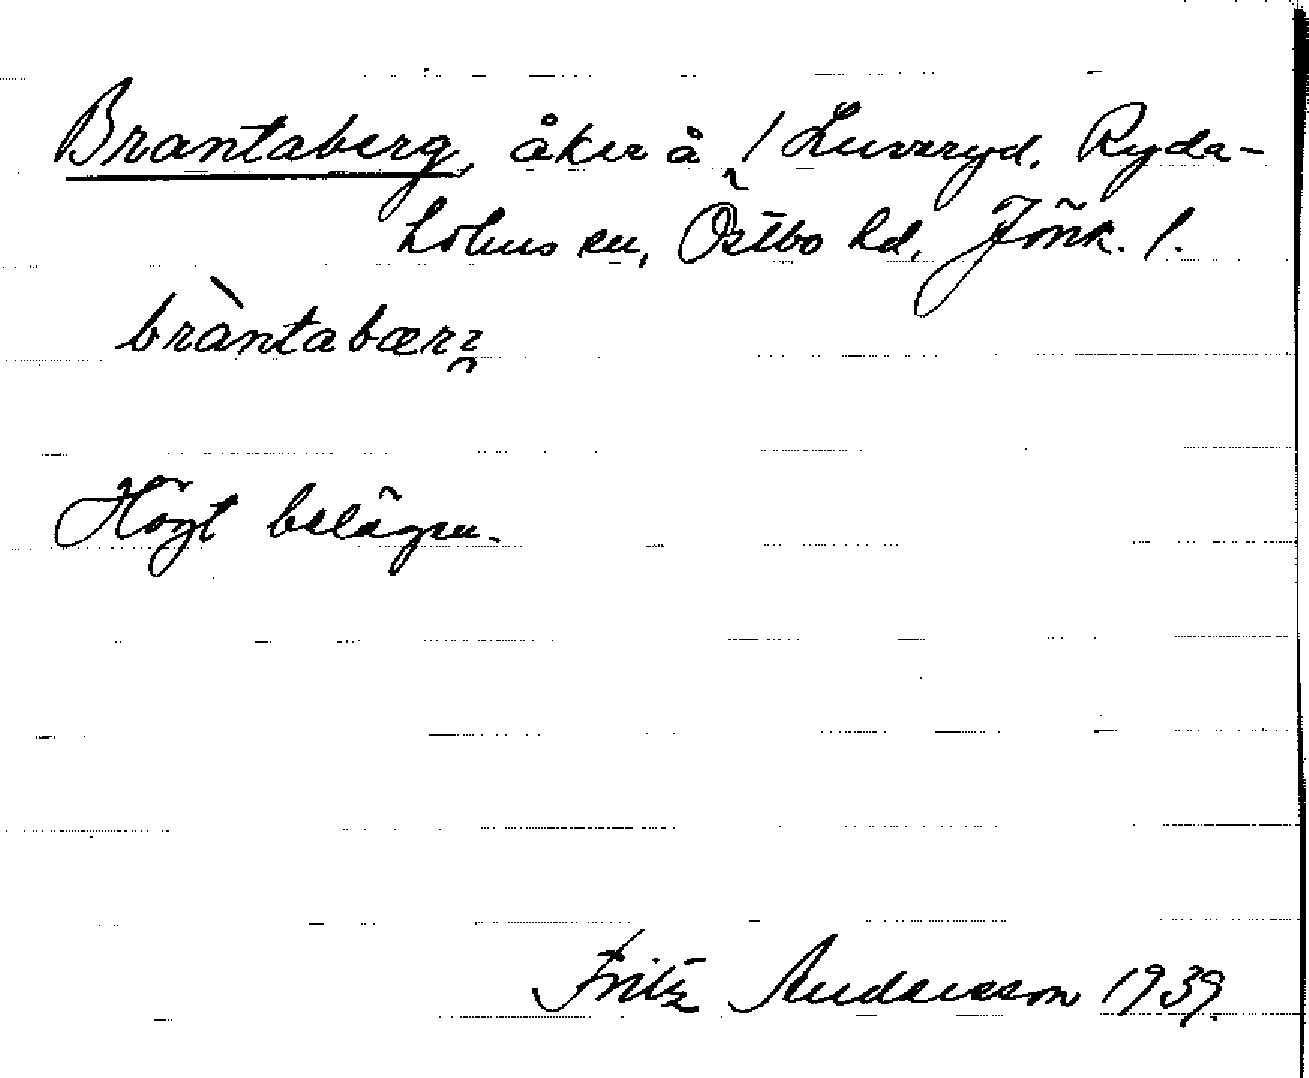 Brantaberg, åker å / Luveryd. Ryda-
holms sn, Östbo hd, Jönk. l.
bràntabærꝛ
Högt belägen.
Fritz Andersson 1939.